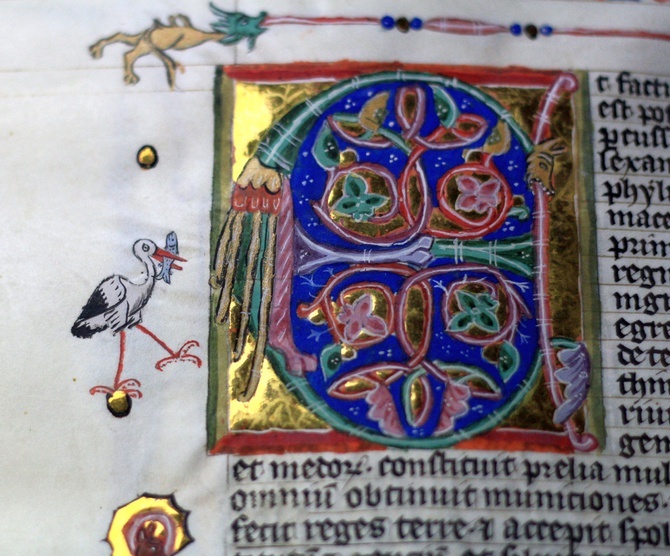 E t factu
est pos
pcuss
lexan
phyl
mace
prim
regn
in g
egre
de te
thi
riu
gem
et medoꝝ. constituit prelia mul
omniū obtinuit municiones
fecit reges terre ⁊ accepit spol